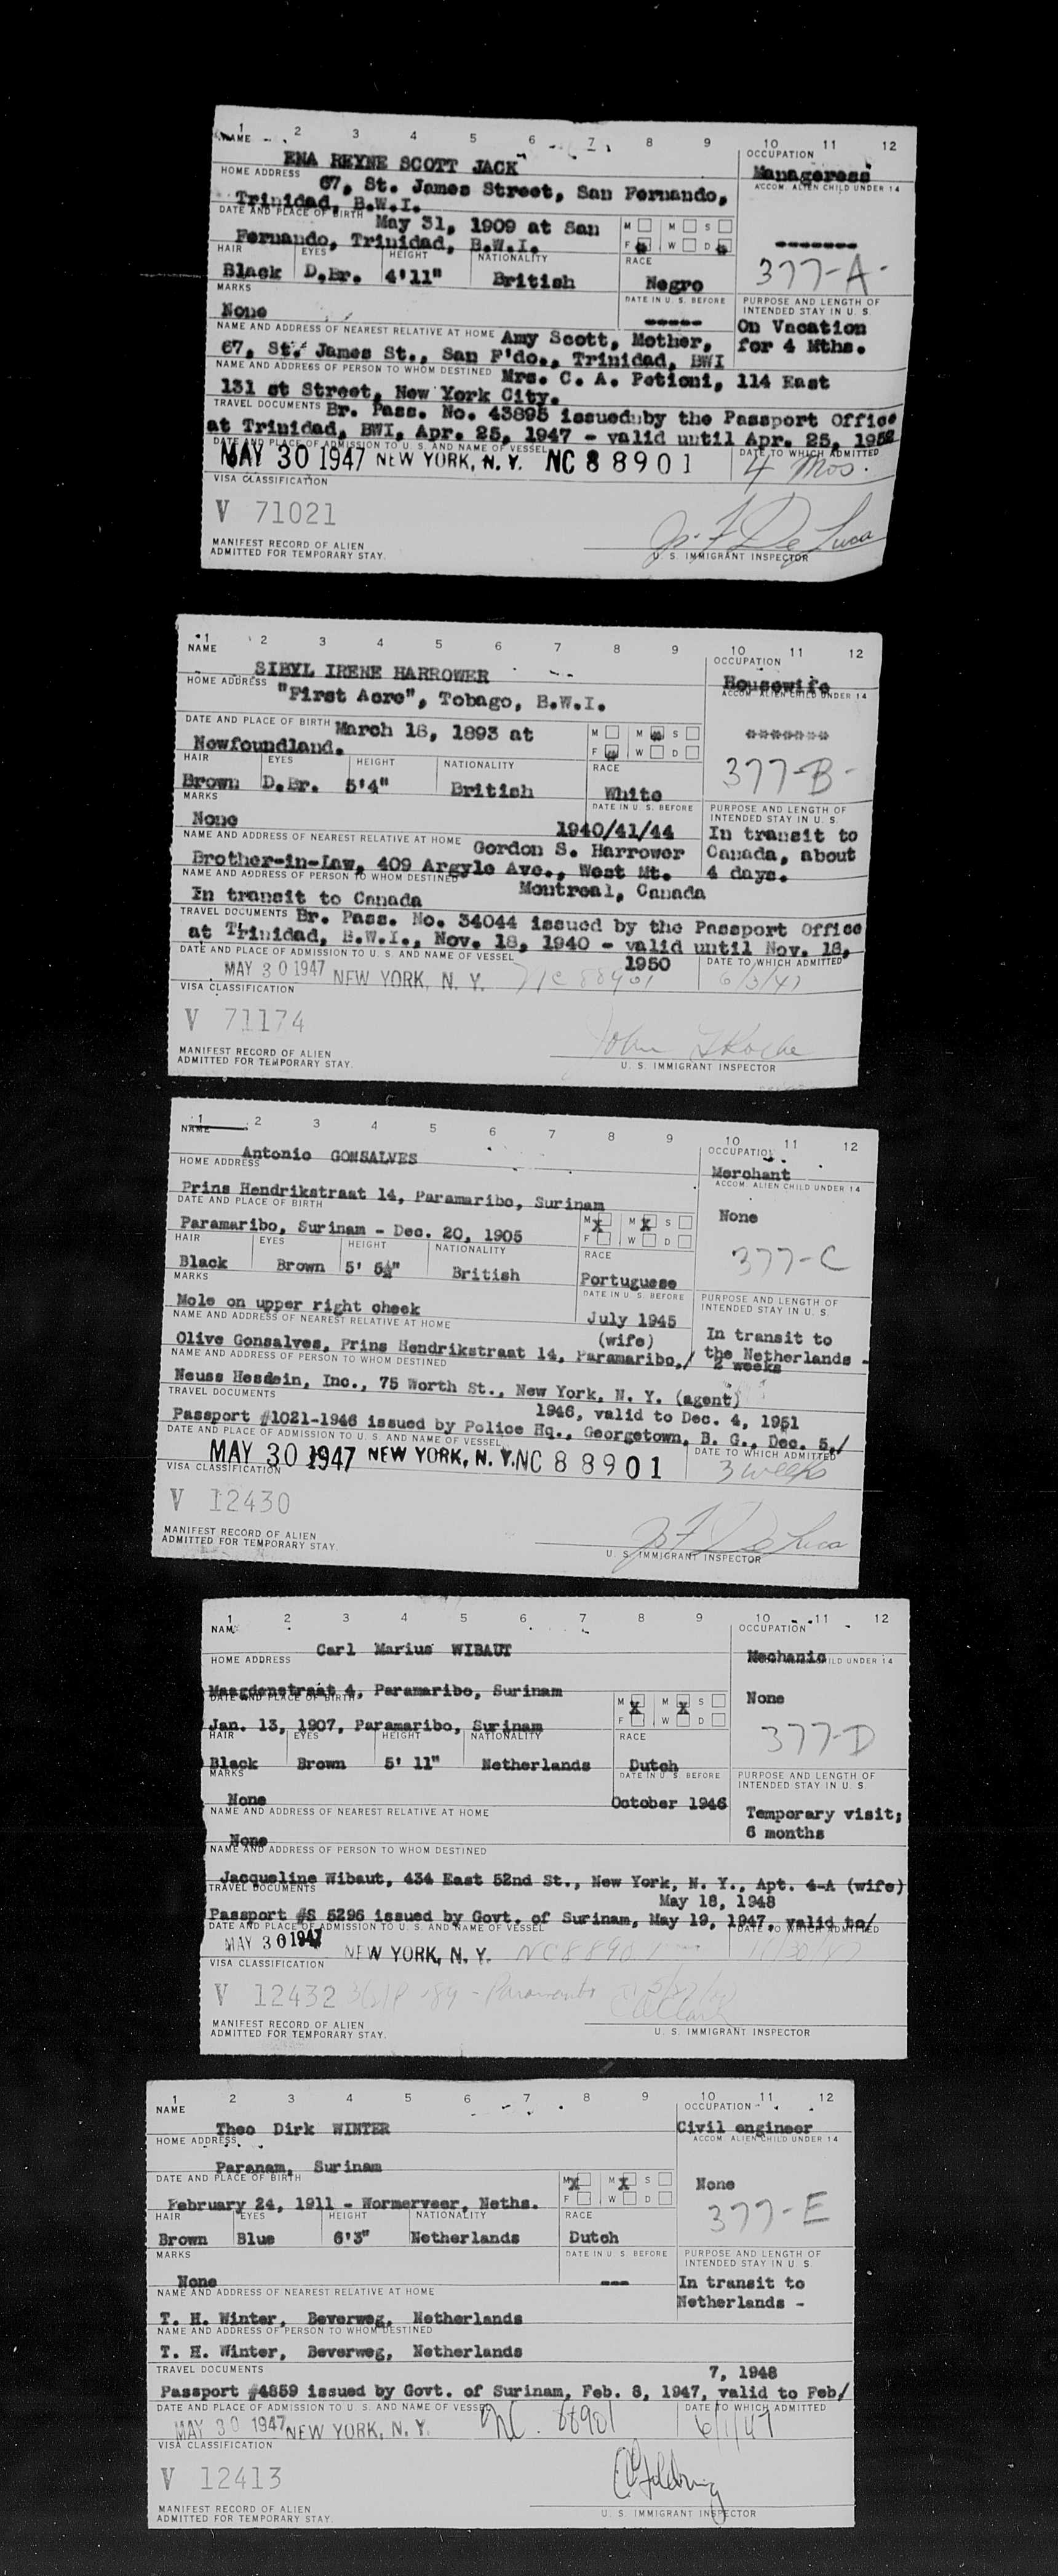 1 2 3 4 5 6 7 8 9 10 11 12
NAME OCCUPATION
ENA REYNE SCOTT JACK Manageress
HOME ADDRESS ACCOM. ALIEN CHILD UNDER 14
67, St. James Street, San Fernando,
Trinidad, B.W.I.
DATE AND PLACE OF BIRTH May 31, 1909 at San M M S
Fernando, Trinidad, B.W.I. F W D -------
HAIR EYES HEIGHT NATIONALITY RACE 377-A-
Black D.Br. 4'11" British Negro
MARKS DATE IN U. S. BEFORE PURPOSE AND LENGTH OF INTENDED STAY IN U. S.
None ----- On Vacation
NAME AND ADDRESS OF NEAREST RELATIVE AT HOME Amy Scott, Mother, for 4 Mths.
67, St. James St., San F'do., Trinidad, BWI
NAME AND ADDRESS OF PERSON TO WHOM DESTINED Mrs. C. A. Petioni, 114 East
131 st Street, New York City.
TRAVEL DOCUMENTS Br. Pass. No. 43895 issued by the Passport Office
at Trinidad, BWI, Apr. 25, 1947 - valid until Apr. 25, 1952
DATE AND PLACE OF ADMISSION TO U. S. AND NAME OF VESSEL DATE TO WHICH ADMITTED
MAY 30 1947 NEW YORK, N. Y. NC 8 8 9 0 1 4 Mos.
VISA CLASSIFICATION
V 71021
Jo. F De Luca
MANIFEST RECORD OF ALIEN
ADMITTED FOR TEMPORARY STAY. U. S. IMMIGRANT INSPECTOR
1 2 3 4 5 6 7 8 9 10 11 12
NAME OCCUPATION
SIBYL IRENE HARROWER Housewife
HOME ADDRESS ACCOM. ALIEN CHILD UNDER 14
"First Acre", Tobago, B.W.I.
DATE AND PLACE OF BIRTH March 18, 1893 at M M S *******
Newfoundland. F W D
HAIR EYES HEIGHT NATIONALITY RACE 377-B-
Brown D.Br. 5'4" British White
MARKS DATE IN U. S. BEFORE PURPOSE AND LENGTH OF INTENDED STAY IN U. S.
None 1940/41/44 In transit to
NAME AND ADDRESS OF NEAREST RELATIVE AT HOME Gordon S. Harrower Canada, about
Brother-in-Law, 409 Argyle Ave., West Mt. 4 days.
NAME AND ADDRESS OF PERSON TO WHOM DESTINED Montreal, Canada
In transit to Canada
TRAVEL DOCUMENTS Br. Pass. No. 34044 issued by the Passport Office
at Trinidad, B.W.I., Nov. 18, 1940 - valid until Nov. 18,
DATE AND PLACE OF ADMISSION TO U. S. AND NAME OF VESSEL 1950 DATE TO WHICH ADMITTED
MAY 30 1947 NEW YORK, N. Y. NC 88901 6/3/47
VISA CLASSIFICATION
V 71174
John Roche
MANIFEST RECORD OF ALIEN
ADMITTED FOR TEMPORARY STAY. U. S. IMMIGRANT INSPECTOR
1 2 3 4 5 6 7 8 9 10 11 12
NAME OCCUPATION
Antonio GONSALVES Merchant
HOME ADDRESS ACCOM. ALIEN CHILD UNDER 14
Prins Hendrikstraat 14, Paramaribo, Surinam None
DATE AND PLACE OF BIRTH M X M X S
Paramaribo, Surinam - Dec. 20, 1905 F W D
HAIR EYES HEIGHT NATIONALITY RACE 377-C
Black Brown 5' 6½" British Portuguese
MARKS DATE IN U. S. BEFORE PURPOSE AND LENGTH OF INTENDED STAY IN U. S.
Mole on upper right cheek July 1945
NAME AND ADDRESS OF NEAREST RELATIVE AT HOME (wife) In transit to
Olive Gonsalves, Prins Hendrikstraat 14, Paramaribo,/ the Netherlands -
NAME AND ADDRESS OF PERSON TO WHOM DESTINED 2 weeks
Neuss Hesslein, Inc., 75 Worth St., New York, N. Y. (agent)
TRAVEL DOCUMENTS 1946, valid to Dec. 4, 1951
Passport #1021-1946 issued by Police Hq., Georgetown, B. G., Dec. 5,/
DATE AND PLACE OF ADMISSION TO U. S. AND NAME OF VESSEL DATE TO WHICH ADMITTED
MAY 30 1947 NEW YORK, N. Y. NC 8 8 9 0 1 3 weeks
VISA CLASSIFICATION
V 12430
Jo F De Luca
MANIFEST RECORD OF ALIEN
ADMITTED FOR TEMPORARY STAY. U. S. IMMIGRANT INSPECTOR
1 2 3 4 5 6 7 8 9 10 11 12
NAME OCCUPATION
Carl Marius WIBAUT Mechanic
HOME ADDRESS CHILD UNDER 14
Maagdenstraat 4, Paramaribo, Surinam None
DATE AND PLACE OF BIRTH M X M X S
Jan. 13, 1907, Paramaribo, Surinam F W D
HAIR EYES HEIGHT NATIONALITY RACE 377-D
Black Brown 5' 11" Netherlands Dutch
MARKS DATE IN U. S. BEFORE PURPOSE AND LENGTH OF INTENDED STAY IN U. S.
None October 1946 Temporary visit;
NAME AND ADDRESS OF NEAREST RELATIVE AT HOME 6 months
None
NAME AND ADDRESS OF PERSON TO WHOM DESTINED
Jacqueline Wibaut, 434 East 52nd St., New York, N. Y., Apt. 4-A (wife)
TRAVEL DOCUMENTS May 18, 1948
Passport #S 5296 issued by Govt. of Surinam, May 19, 1947, valid to/
DATE AND PLACE OF ADMISSION TO U. S. AND NAME OF VESSEL DATE TO WHICH ADMITTED
MAY 30 1947 NEW YORK, N. Y. NC 88901 11/30/47
VISA CLASSIFICATION
V 12432
MANIFEST RECORD OF ALIEN
ADMITTED FOR TEMPORARY STAY. U. S. IMMIGRANT INSPECTOR
1 2 3 4 5 6 7 8 9 10 11 12
NAME OCCUPATION
Theo Dirk WINTER Civil engineer
HOME ADDRESS ACCOM. ALIEN CHILD UNDER 14
Paranam, Surinam
DATE AND PLACE OF BIRTH M X M X S None
February 24, 1911 - Wormerveer, Neths. F W D
HAIR EYES HEIGHT NATIONALITY RACE 377-E
Brown Blue 6'3" Netherlands Dutch
MARKS DATE IN U. S. BEFORE PURPOSE AND LENGTH OF INTENDED STAY IN U. S.
None --- In transit to
NAME AND ADDRESS OF NEAREST RELATIVE AT HOME Netherlands -
T. H. Winter, Beverweg, Netherlands
NAME AND ADDRESS OF PERSON TO WHOM DESTINED
T. H. Winter, Beverweg, Netherlands
TRAVEL DOCUMENTS 7, 1948
Passport #4859 issued by Govt. of Surinam, Feb. 8, 1947, valid to Feb/
DATE AND PLACE OF ADMISSION TO U. S. AND NAME OF VESSEL DATE TO WHICH ADMITTED
MAY 30 1947 NEW YORK, N. Y. NC. 88901 6/1/47
VISA CLASSIFICATION
V 12413
MANIFEST RECORD OF ALIEN
ADMITTED FOR TEMPORARY STAY. U. S. IMMIGRANT INSPECTOR